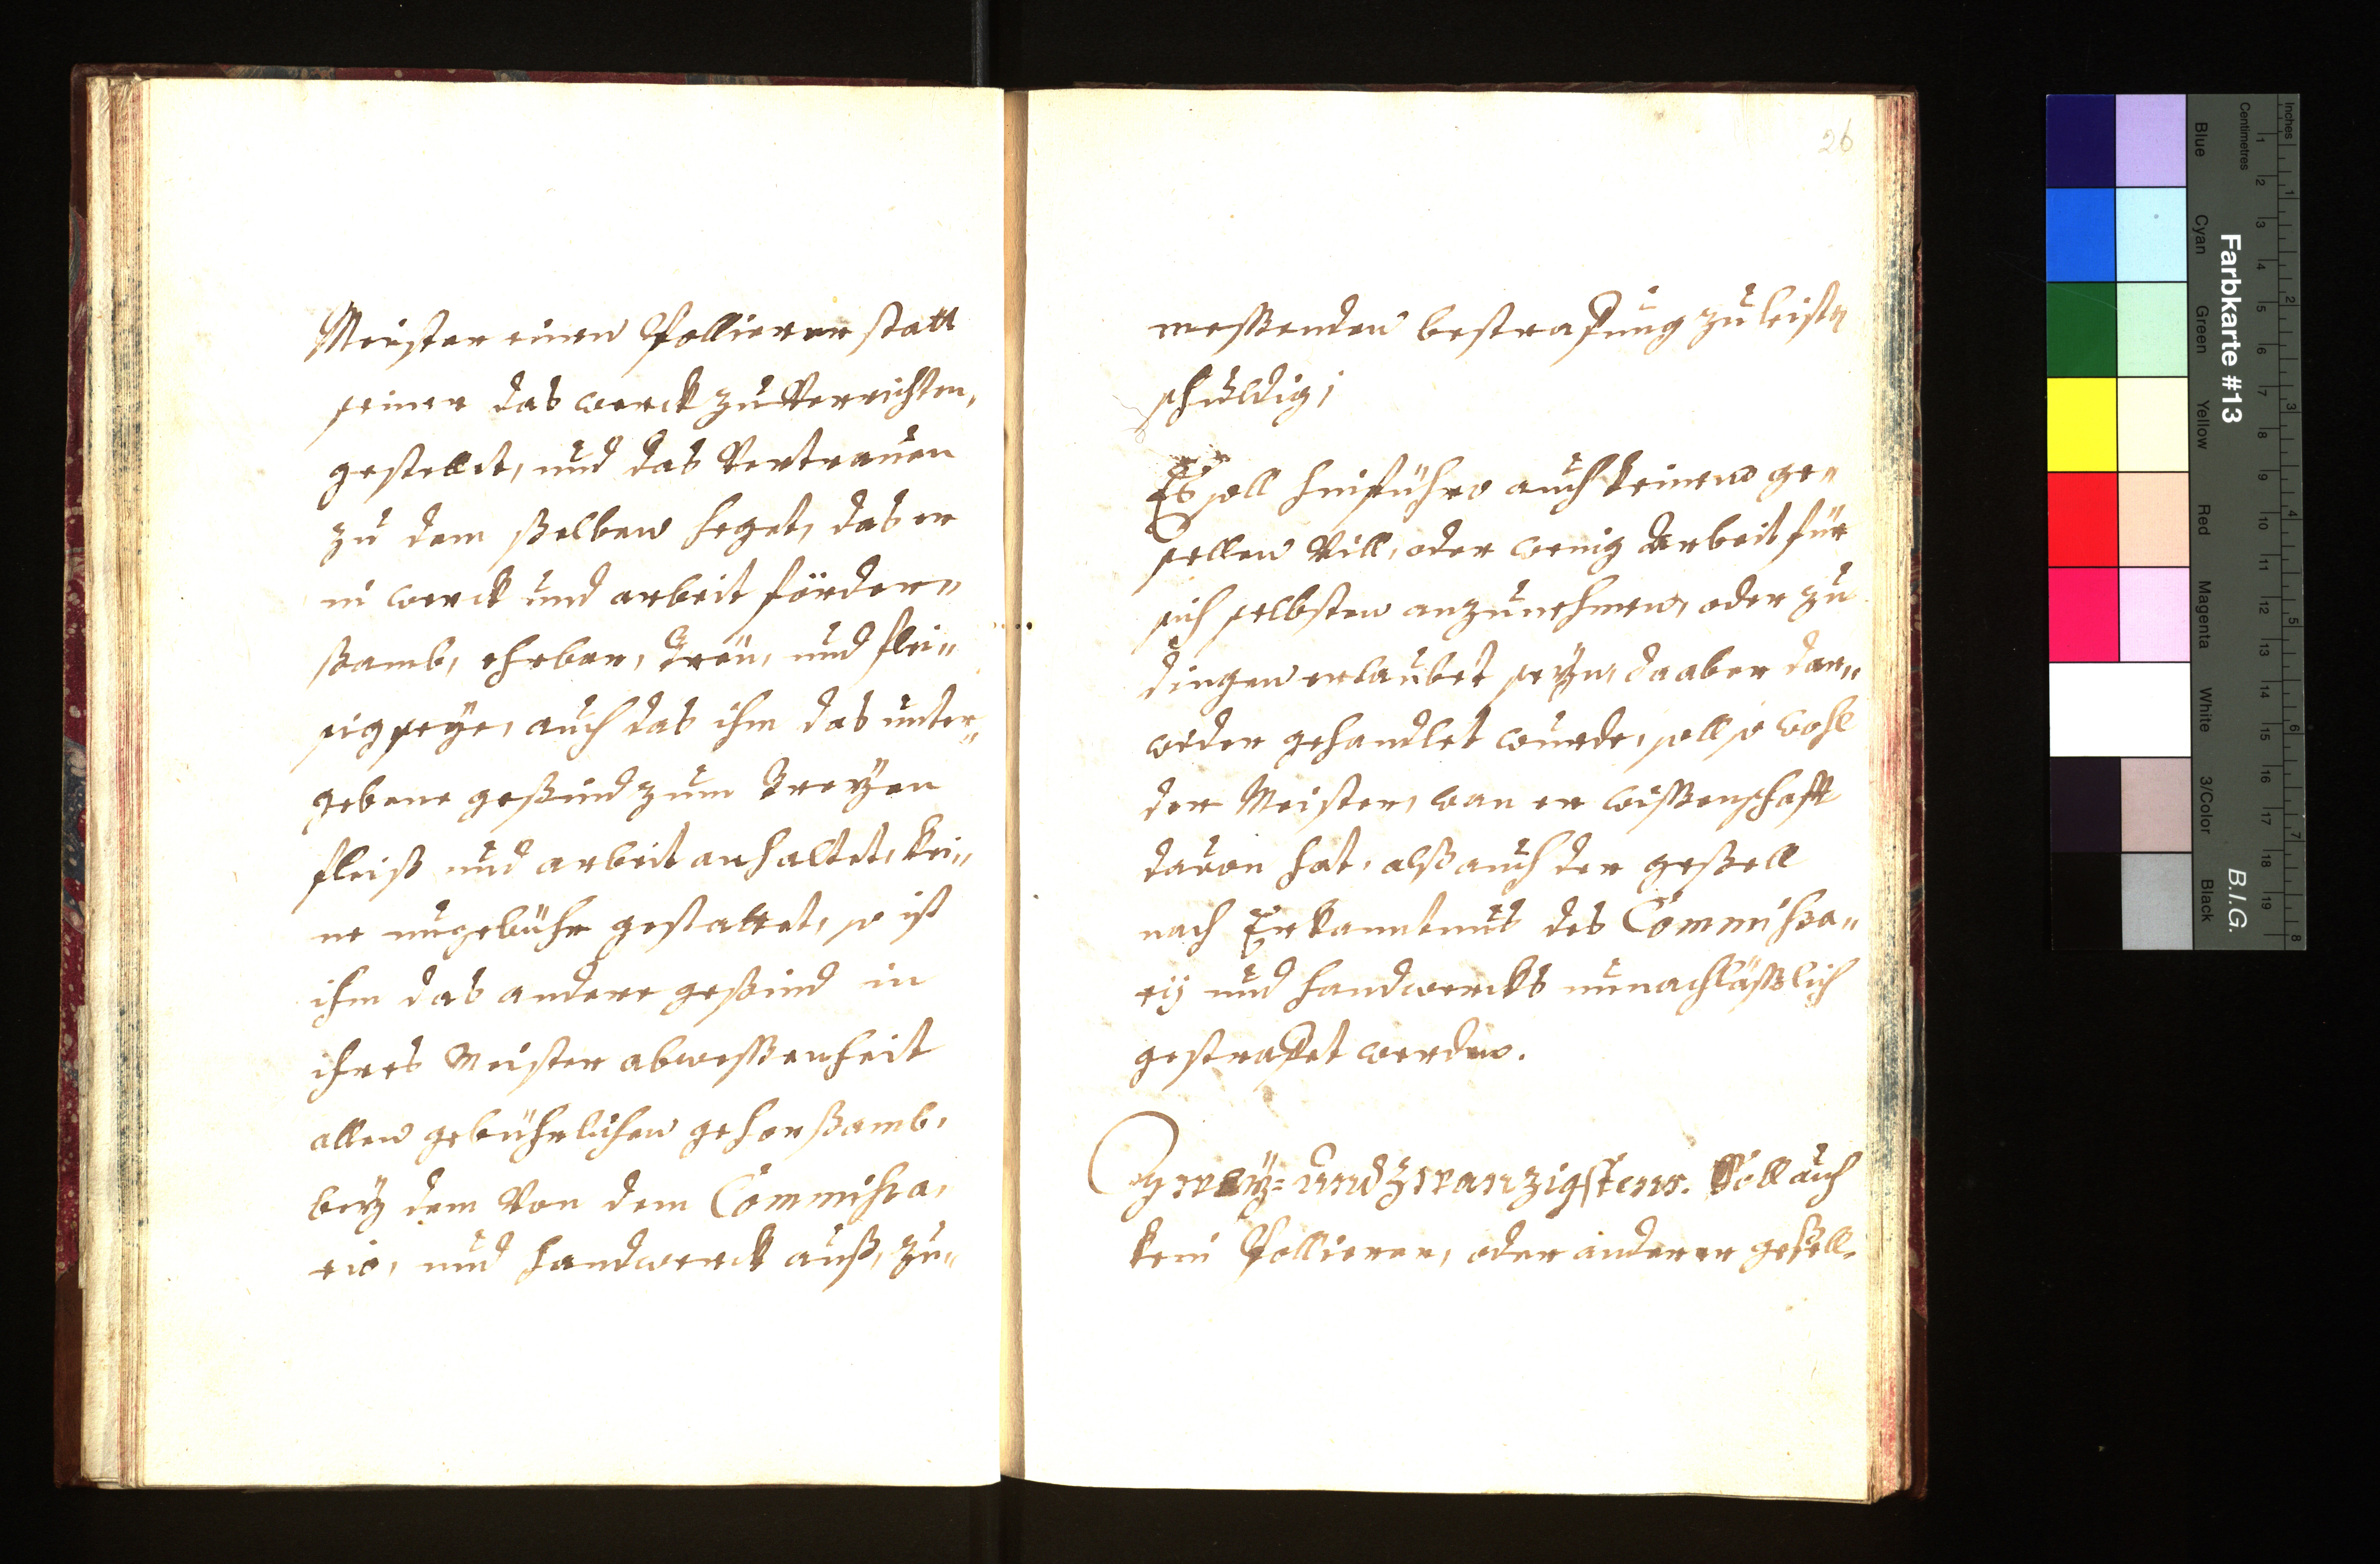 Meister einen Pollierer statt
seiner das werck zu Verrichten,
gestellet, und das Vertrauen
zu dem ßelben heget, das er
in werck und arbeit förder„
ßamb, ehrbar, Treü, und flei„
sig seÿe, auch das ihm das unter„
gebene geßind zum Treyen
fleiß und arbeit anhaltet, kei„
ne ungebühr gestattet, so ist
ihm das andere geßind in
ihres Meister abweßenheit
allen gebührlichen gehorßamb,
beÿ dem Von dem Commißa,
rio, und handwerck auß, zu„
26
meßenden bestrafung zu leisten
schuldig;
Es soll hinführo auch keinem ge„
sellen Vill, oder wenig Arbeit für
sich selbsten anzunehmen, oder zu
dingen erlaubet seÿn, da aber dar„
wider gehandlet wurde, soll so wohl
der Meister, wan er wißenschafft
davon hat, alß auch der geßell
nach Erkanntnus des Commißa„
rij und handwercks unnachläßlich
gestrafet werden.
Zweÿ= und Zwanzigstens. Soll auch
kein Pollierer, oder anderer geßell,
Inches
Centimetres
1 2 3 4 5 6 7 8 9 10 11 12 13 14 15 16 17 18 19
1 2 3 4 5 6 7 8
Farbkarte #13
B.I.G.
Blue
Cyan
Green
Yellow
Red
Magenta
White
3/Color
Black